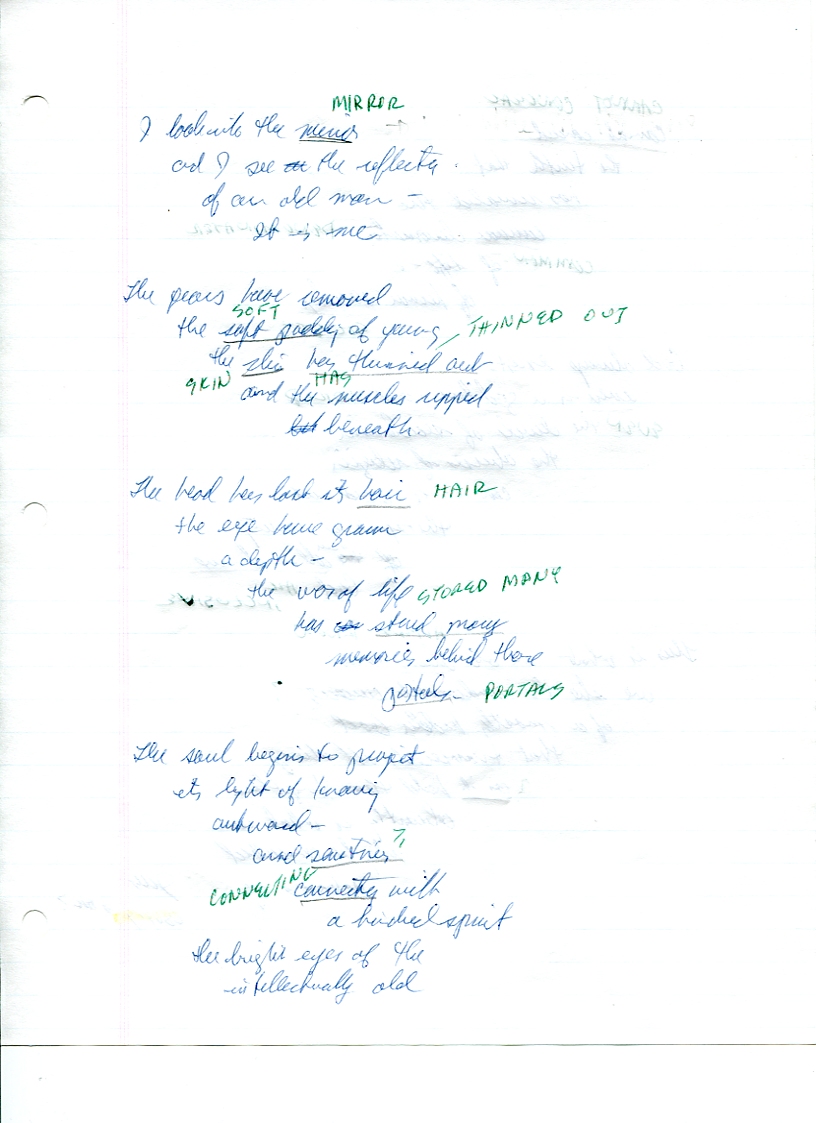 MIRROR
I look into the mirror
and I see the reflecty
of an old man –
It is me.
The years have removed
SOFT
the soft paddy of young THINNED OUT
the skin has thinned out
SKIN HAS
and the muscles ripped
but beneath
The head has lost its hair HAIR
the eye have grown
a depth –
the of life STORED MANY
has stored many
memories behind those
portals – PORTALS
The soul begins to project
its light of knowing
outward –
?
and
CONNECTING connecting with
a kindred spirit
the bright eyes of the
intellectually old